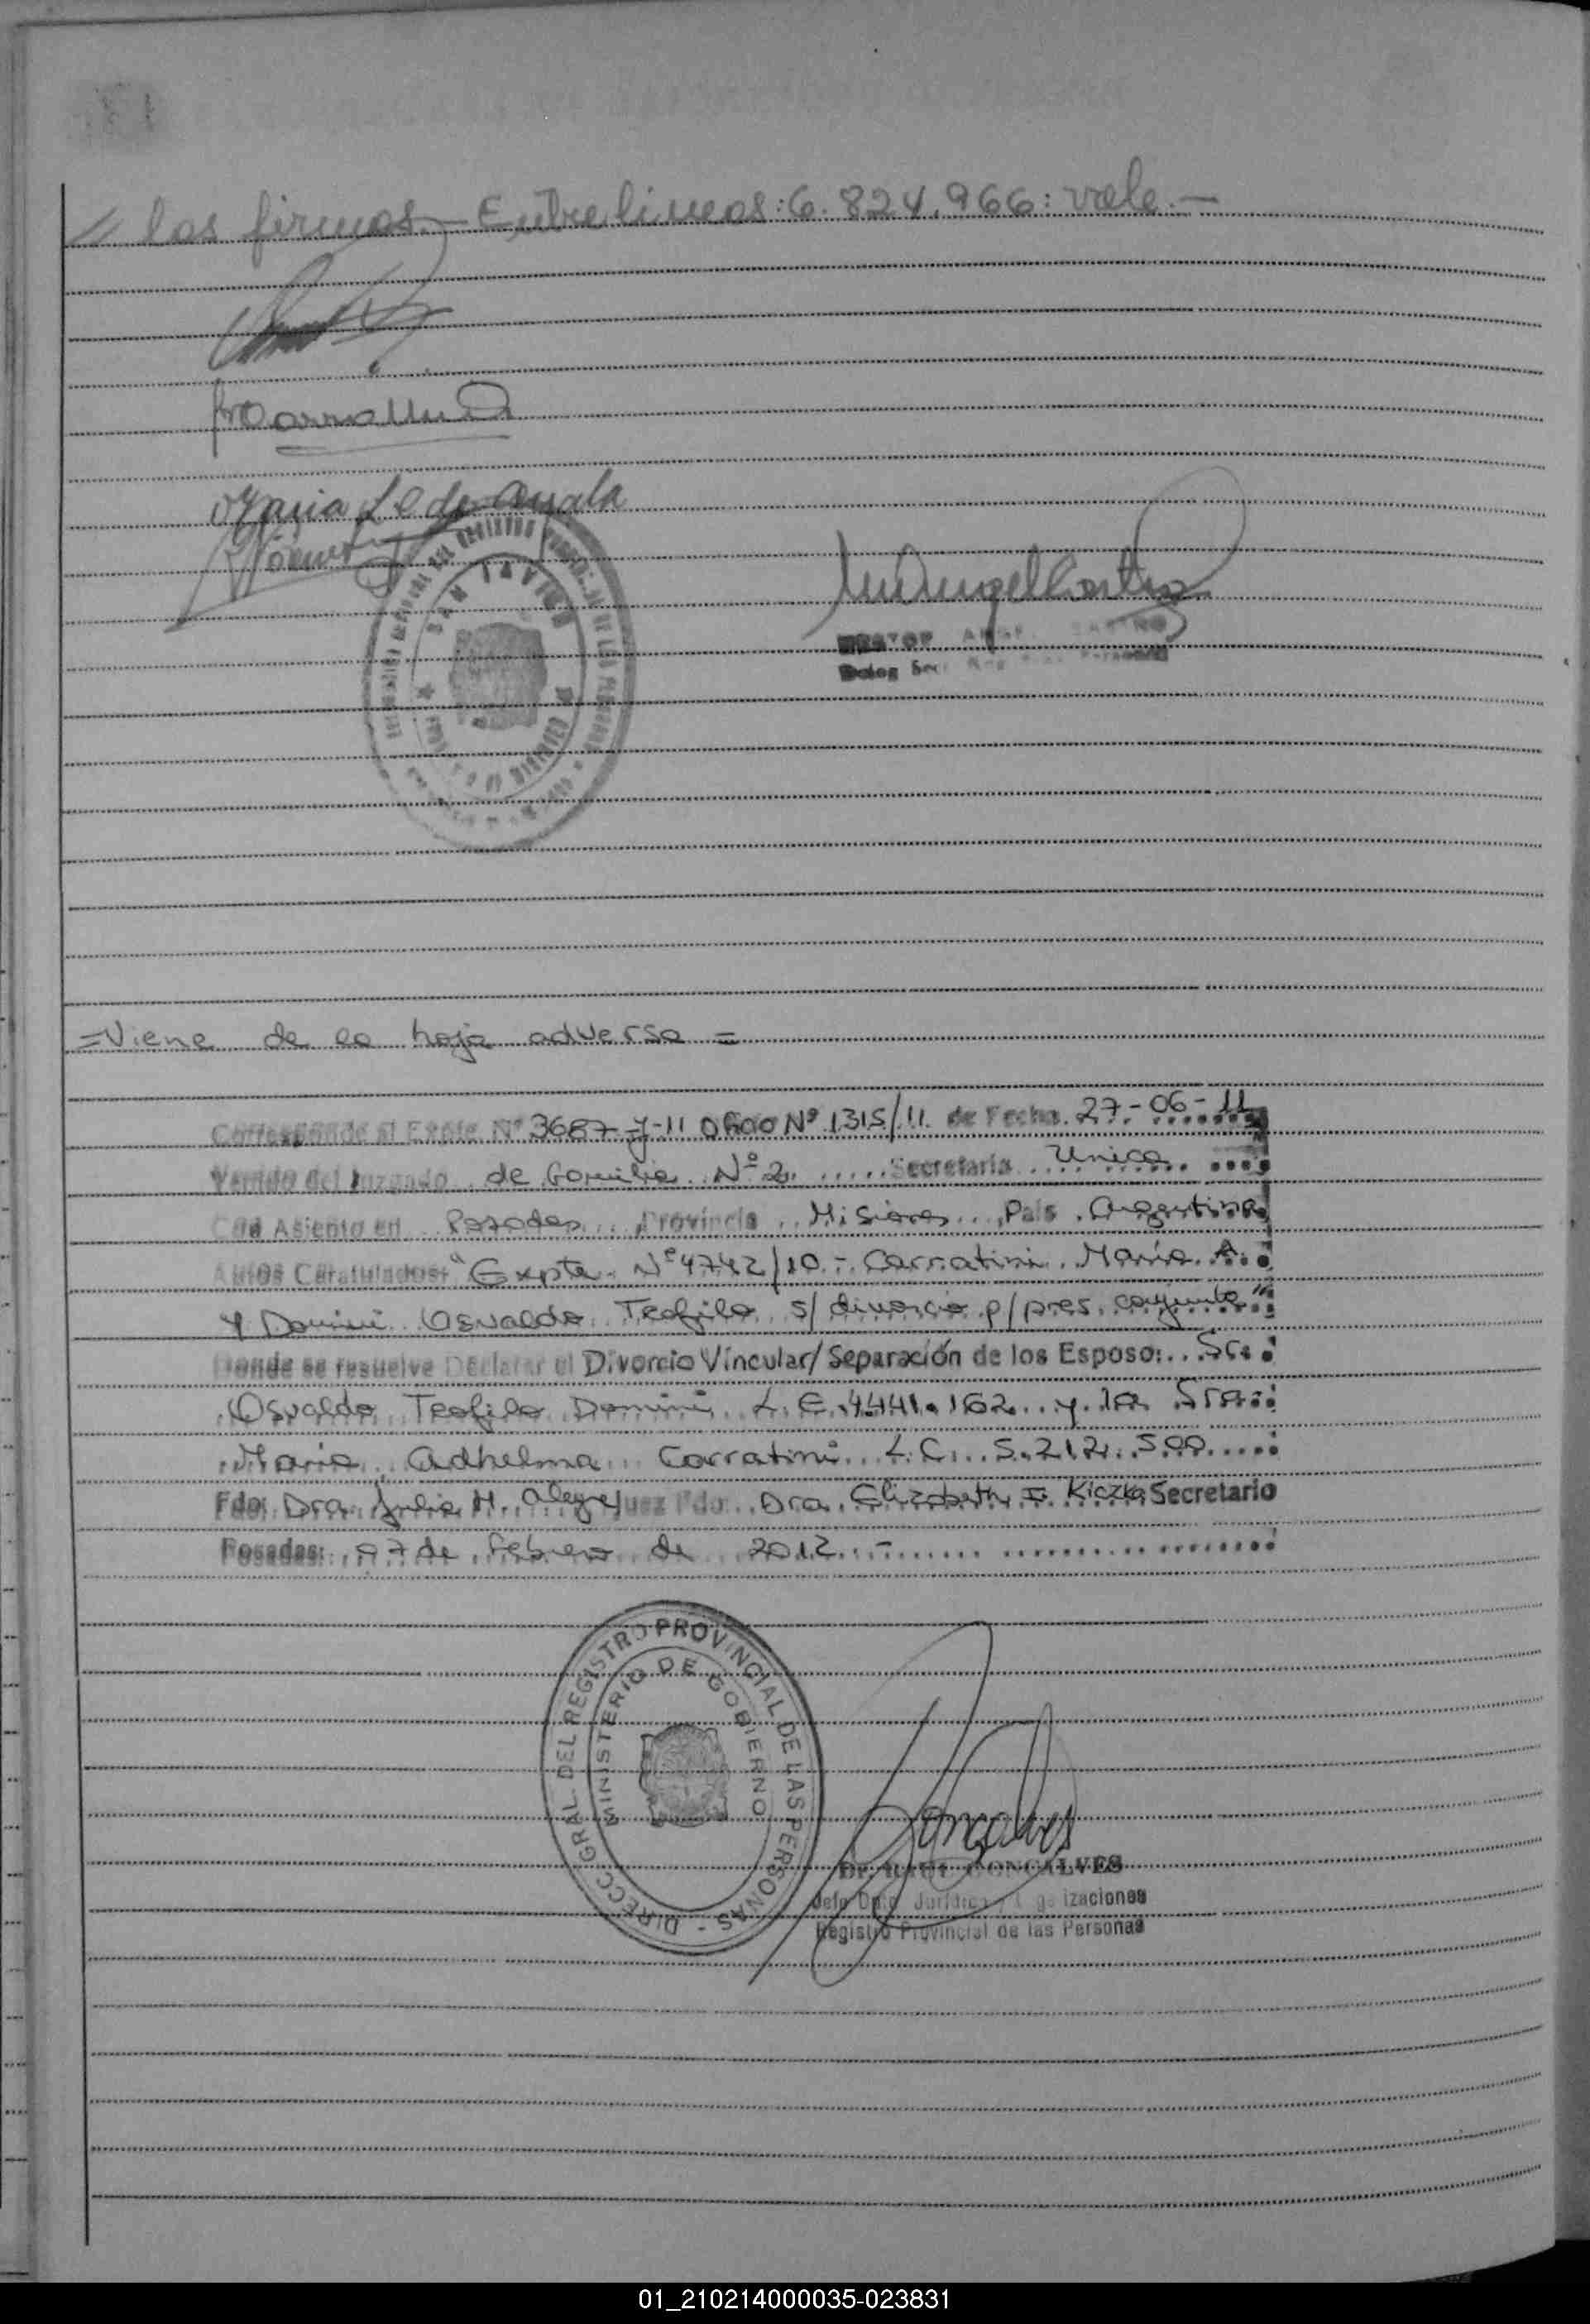 // las firmas.- Entre lineas: 6.824.966: vale.-
Maria L de Ayala
SAN JAVIER
=Viene de la hoja adversa =
Corresponde al Expte Nº 3687-J-11 Oficio Nº 1315/11. de Fecha. 27-06-11
Venido del Juzgado de Familia Nº 2. Secretaria Unica
Con Asiento en Posadas Provincia Misiones País Argentina
Autos Caratulados: "Expte. Nº 4742/10.- Carratini María A.
y Domini Osvaldo Teofilo s/ divorcio p/ pres. conjunta"
Donde se resuelve Declarar el Divorcio Vincular/Separación de los Esposo: Sr.
Osvaldo Teofilo Domini L.E. 4441.162 y la Sra.
María Adhelma Carratini L.C. 5.212.500
Fdo: Dra. Julia H. Alegre Juez Fdo: Dra. Elizabeth I. Kiczka Secretario
Posadas: 07 de febrero de 2012.-
DIRECC. GRAL. DEL REGISTRO PROVINCIAL DE LAS PERSONAS -
MINISTERIO DE GOBIERNO
Gonçalves
Dr. RAUL GONCALVES
Jefe Dpto. Jurídico
Registro Provincial de las Personas
01_210214000035-023831